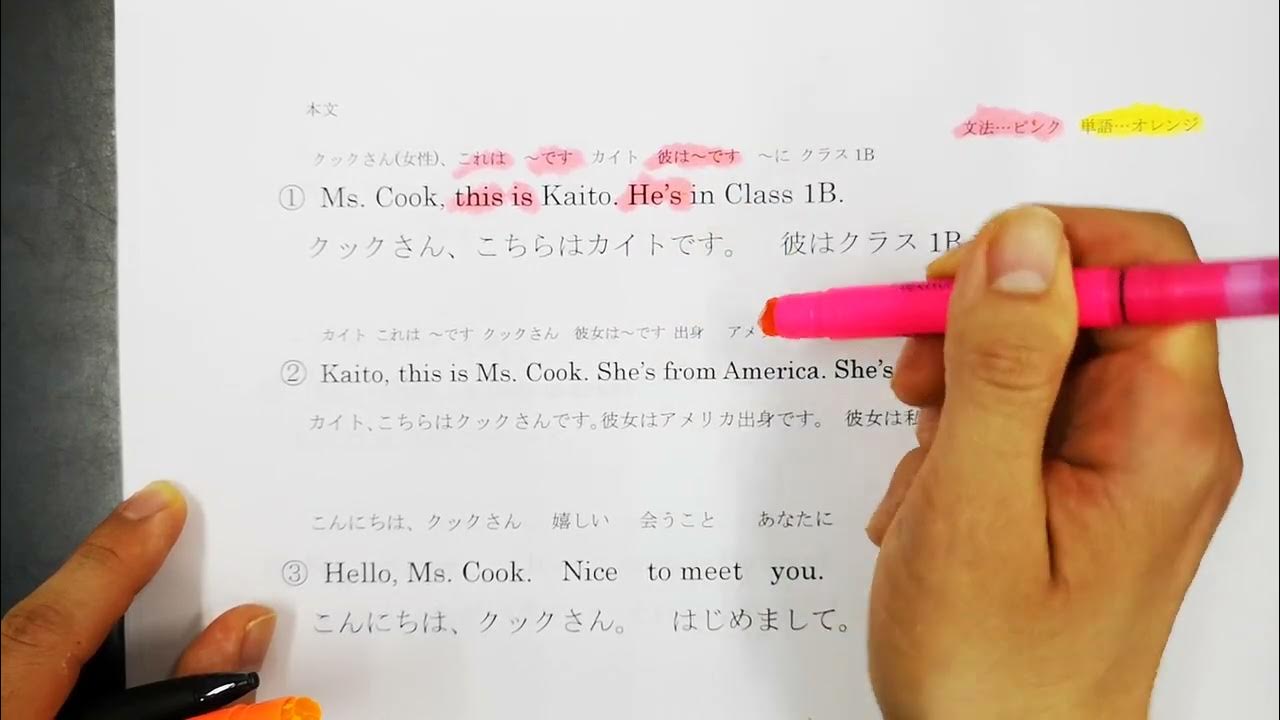 本文
文法…ピンク 単語…オレンジ
クックさん(女性)、これは ～です カイト 彼は～です ～に クラス1B
① Ms. Cook, this is Kaito. He's in Class 1B.
クックさん、こちらはカイトです。 彼はクラス1B
カイト これは ～です クックさん 彼女は～です 出身 アメ
② Kaito, this is Ms. Cook. She's from America. She's
カイト、こちらはクックさんです。彼女はアメリカ出身です。 彼女は私
こんにちは、クックさん 嬉しい 会うこと あなたに
③ Hello, Ms. Cook. Nice to meet you.
こんにちは、クックさん。 はじめまして。